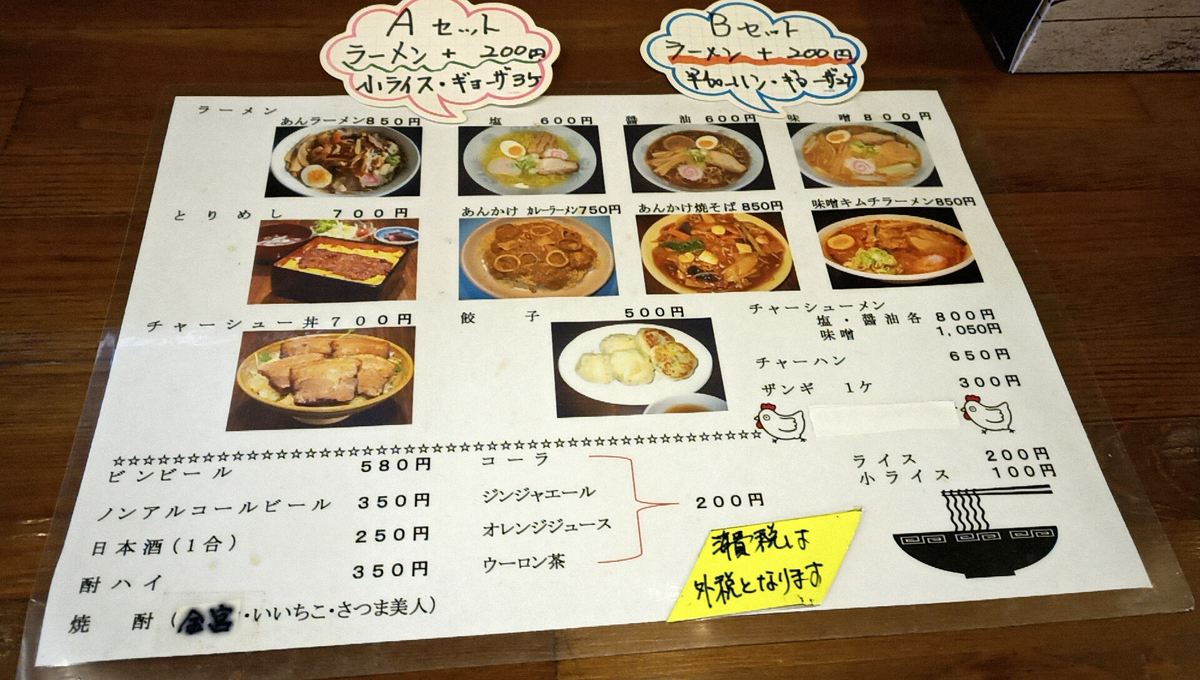 A セット
ラーメン + 200円
小ライス・ギョーザ3ケ
Bセット
ラーメン + 200円
半チャーハン・ギョーザ2ケ
ラーメン
あんラーメン850円
塩 600円
醤油 600円
味噌 800円
とりめし 700円
あんかけ カレーラーメン750円
あんかけ焼そば 850円
味噌キムチラーメン850円
チャーシュー丼700円
餃子 500円
チャーシューメン
塩・醤油各 800円
味噌 1,050円
チャーハン 650円
ザンギ 1ケ 300円
☆☆☆☆☆☆☆☆☆☆☆☆☆☆☆☆☆☆☆☆☆☆☆☆☆☆☆☆☆☆☆☆☆☆☆☆☆☆☆☆☆☆☆☆☆☆☆☆
ライス 200円
小ライス 100円
ビンビール 580円
ノンアルコールビール 350円
日本酒(1合) 250円
酎ハイ 350円
焼酎 (金宮・いいちこ・さつま美人)
コーラ
ジンジャエール
オレンジジュース
ウーロン茶
200円
消費税は
外税となります